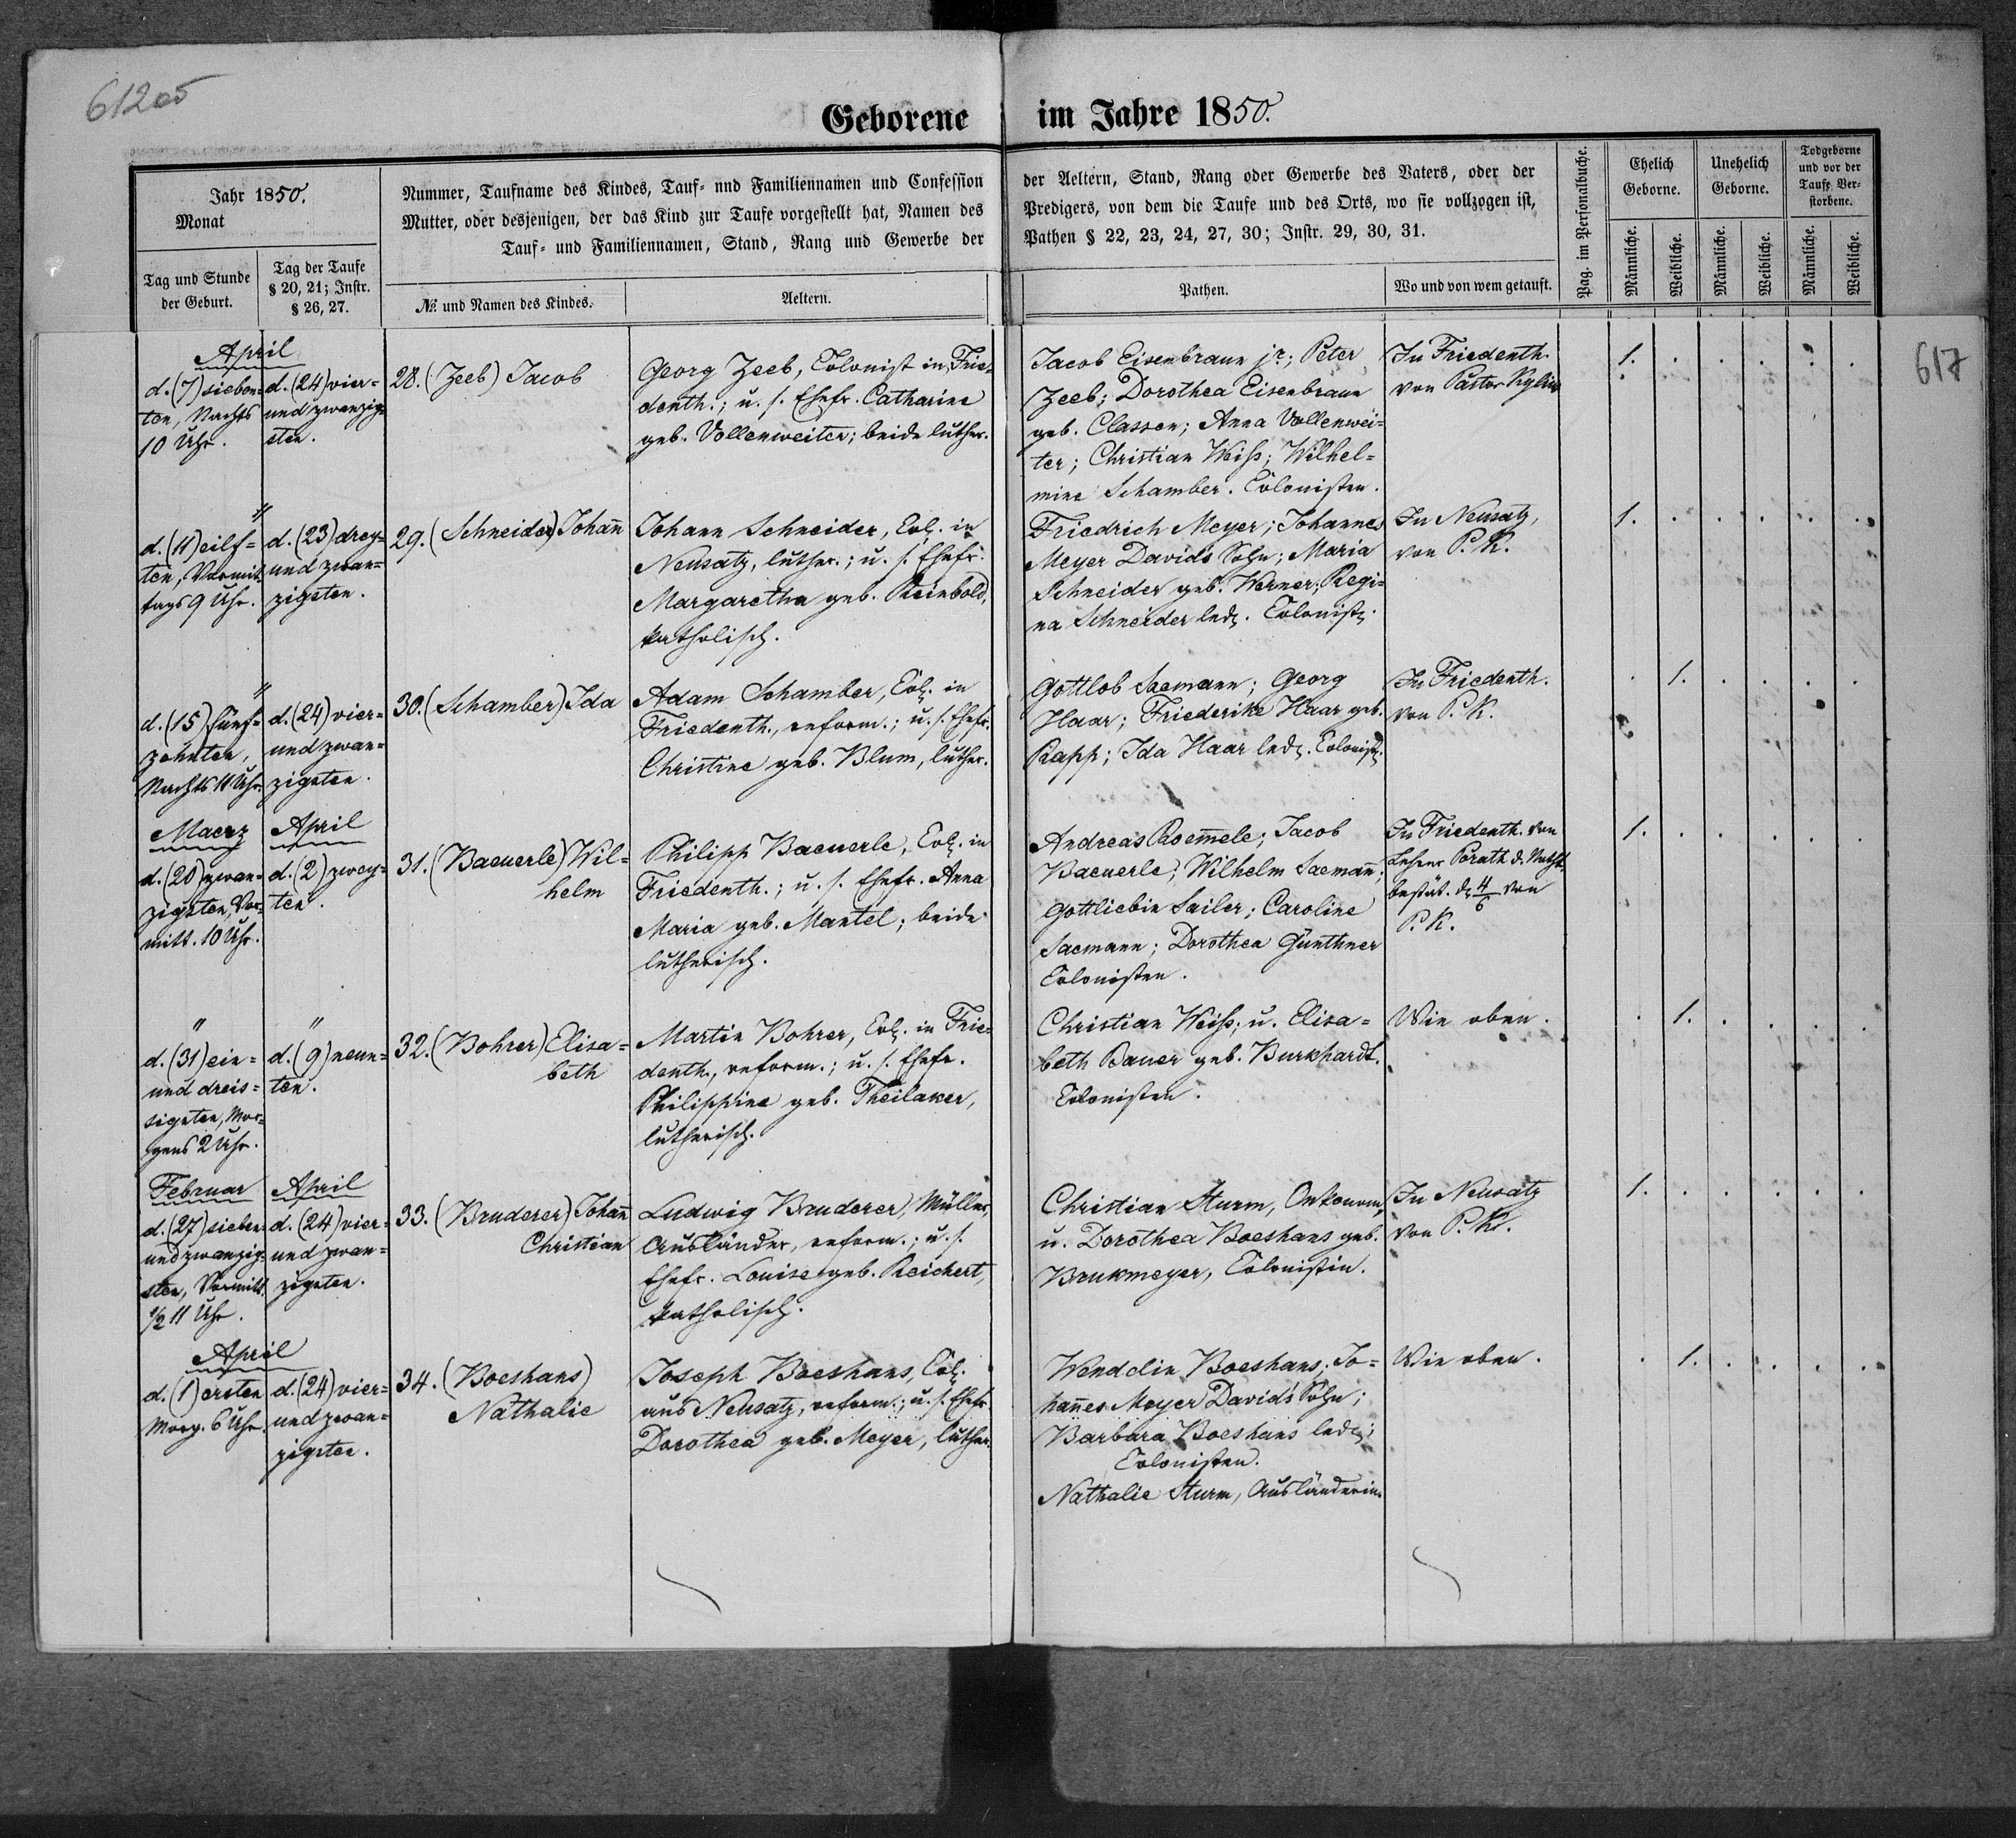 612 об
Geborene im Jahre 1850.
Jahr 1850.
Monat
Tag und Stunde
der Geburt.
Tag der Taufe
§ 20, 21; Instr.
§ 26, 27.
Nummer, Taufname des Kindes, Tauf- und Familiennamen und Confession
Mutter, oder desjenigen, der das Kind zur Taufe vorgestellt hat, Namen des
Tauf- und Familiennamen, Stand, Rang und Gewerbe der
№ und Namen des Kindes.
Aeltern.
der Aeltern, Stand, Rang oder Gewerbe des Vaters, oder der
Predigers, von dem die Taufe und des Orts, wo sie vollzogen ist,
Pathen § 22, 23, 24, 27, 30; Instr. 29, 30, 31.
Pathen.
Wo und von wem getauft.
Pag. im Personalbuche.
Ehelich
Geborne.
Unehelich
Geborne.
Todgeborne
und vor der
Taufe Ver-
storbene.
Männliche.
Weibliche.
Männliche.
Weibliche.
Männliche.
Weibliche.
617
April
d. (7) sieben=
ten, Nachts
10 Uhr.
d. (24) vier=
und zwanzig=
sten.
28. (Zeeb) Jacob
Georg Zeeb, Colonist in Frie=
denth.; u. s. Ehefr. Catharine
geb. Vollenweiter; beide luther.
Jacob Eisenbraun jr.; Peter
Zeeb; Dorothea Eisenbraun
geb. Classen; Anna Vollenwei=
ter; Christian Weiß; Wilhel=
mine Schamber. Colonisten.
In Friedenth.
von Pastor Kylius
1. . . . . .
"
d. (11) eilf=
ten, Vormit=
tags 9 Uhr.
d. (23) drey=
und zwan=
zigsten.
29. (Schneider) Johann̄
Johann Schneider, Col. in
Neusatz, luther.; u. s. Ehefr.
Margaretha geb. Reinbold,
katholisch.
Friedrich Meyer; Johannes
Meyer Davids Sohn; Maria
Schneider geb. Werner; Regi=
na Schneider led. Colonist.
In Neusatz,
von P. K.
1. . . . . .
"
d. (15) fünf=
zehnten,
Nachts 11 Uhr.
d. (24) vier=
und zwan=
zigsten.
30. (Schamber) Ida
Adam Schamber, Col. in
Friedenth., reform.; u. s. Ehefr.
Christine geb. Blum, luther.
Gottlob Saemann; Georg
Haar; Friederike Haar geb.
Rapp; Ida Haar led. Colonist.
In Friedenth.
von P. K.
. 1. . . . .
Maerz
d. (20) zwan=
zigsten, Vor=
mitt. 10 Uhr.
April
d. (2) zwey=
ten.
31. (Baeuerle) Wil=
helm
Philipp Baeuerle, Col. in
Friedenth.; u. s. Ehefr. Anna
Maria geb. Mantel; beide
lutherisch.
Andreas Roem̄ele; Jacob
Baeuerle; Wilhelm Saeman̄;
Gottliebin Sailer; Caroline
Saemann; Dorothea Günthner
Colonisten.
In Friedenth. von
Lehrer Porath d. Notht.
bestät. d. 4/6 von
P. K.
1. . . . . .
"
d. (31) ein=
und dreis=
sigsten, Mor=
gens 2 Uhr.
"
d. (9) neun=
ten.
32. (Bohrer) Elisa=
beth
Martin Bohrer, Col. in Frie=
denth., reform.; u. s. Ehefr.
Philippine geb. Theilaker,
lutherisch.
Christian Weiß; u. Elisa=
beth Bauer geb. Burkhardt.
Colonisten.
Wie oben.
. 1. . . . .
Februar
d. (27) sieben=
und zwanzig=
sten, Vormitt.
1/2 11 Uhr.
April
d. (24) vier=
und zwan=
zigsten.
33. (Bruderer) Johan̄
Christian
Ludwig Bruderer, Müller,
Ausländer, reform.; u. s.
Ehefr. Louise geb. Reichert,
katholisch.
Christian Sturm, Oekonom,
u. Dorothea Boeshans geb.
Brukmeyer, Colonistin.
In Neusatz
von P. K.
1. . . . . .
April
d. (1) ersten
Morg. 6 Uhr.
d. (24) vier=
und zwan=
zigsten.
34. (Boeshans)
Nathalie
Joseph Boeshans, Col.
aus Neusatz, reform.; u. s. Ehefr.
Dorothea geb. Meyer, luther.
Wenddin Boeshans; Jo=
han̄es Meyer Davids Sohn;
Barbara Boeshans led.;
Colonisten.
Nathalie Sturm, Ausländerin.
Wie oben.
. 1. . . . .